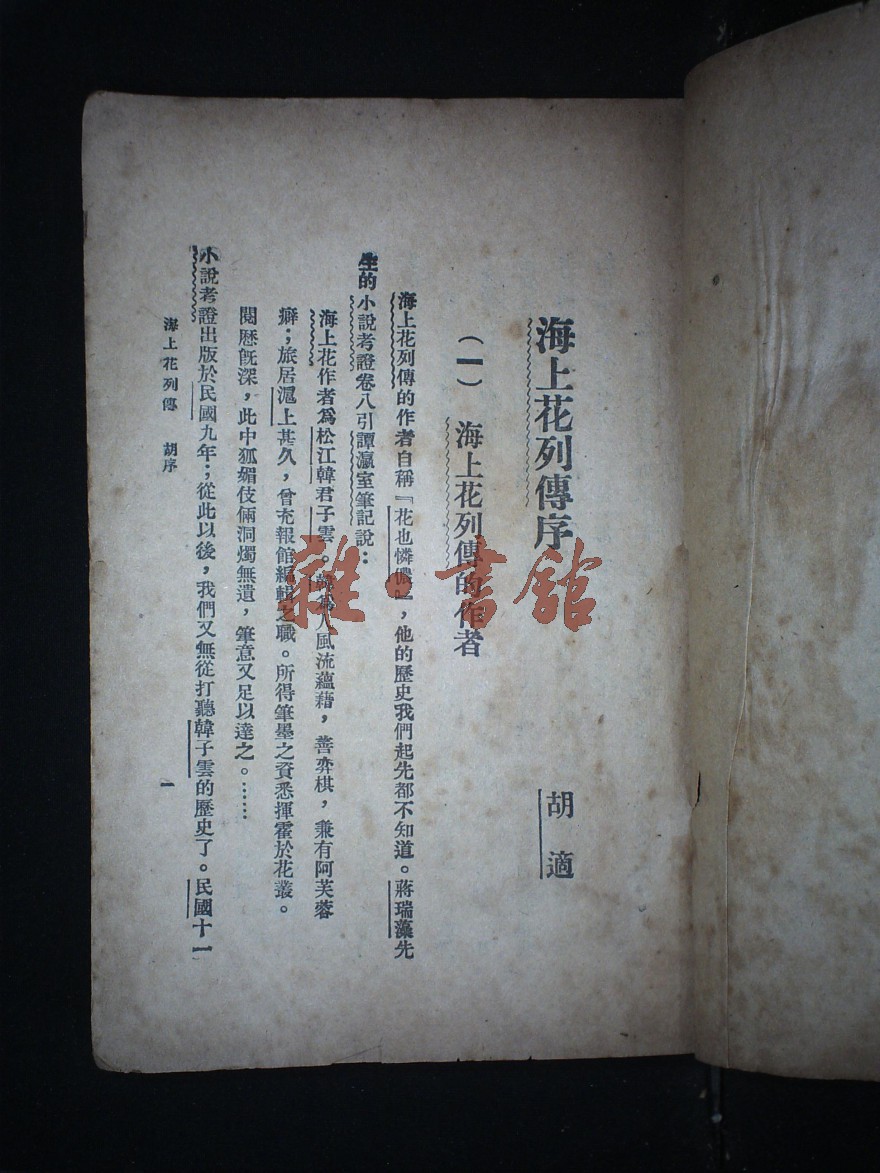 海上花列傳序
胡適
（一）　海上花列傳的作者
海上花列傳的作者自稱『花也憐儂』，他的歷史我們起先都不知道。蔣瑞藻先
生的小說考證卷八引譚瀛室筆記說：
海上花作者爲松江韓君子雲。韓爲人風流蘊藉，善弈棋，兼有阿芙蓉
癖；旅居滬上甚久，曾充報館編輯之職。所得筆墨之資悉揮霍於花叢。
閱歷旣深，此中狐媚伎倆洞燭無遺，筆意又足以達之。……
小說考證出版於民國九年；從此以後，我們又無從打聽韓子雲的歷史了。民國十一
海上花列傳　胡序
一
雜·書館